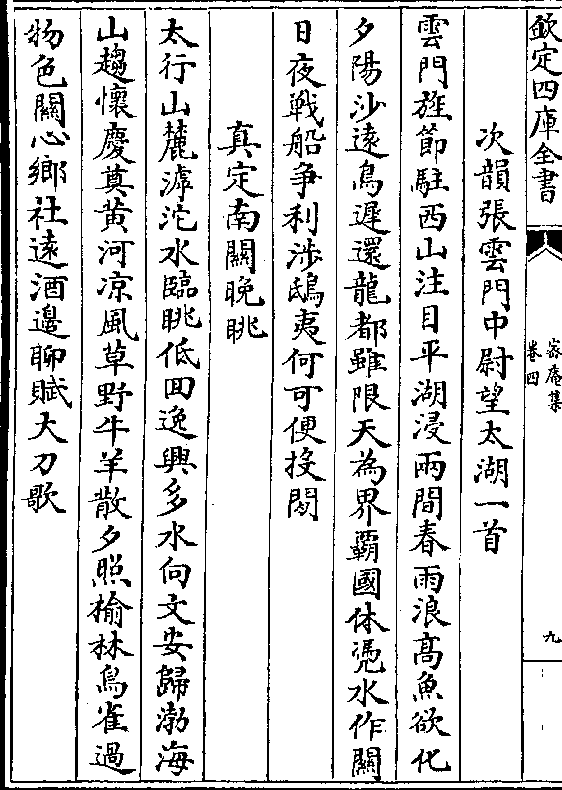 欽定四庫全書
密庵集
卷四
九
次韻張雲門中尉望太湖一首
雲門旌節駐西山注目平湖浸兩間春雨浪髙魚欲化
夕陽沙逺鳥遲還龍都雖限天為界覇國休凴水作關
日夜戰船争利涉鴟夷何可便投閒
真定南關晚眺
太行山麓滹沱水臨眺低回逸興多水向文安歸渤海
山趨懷慶奠黄河凉風草野牛羊散夕照榆林鳥雀過
物色關心鄉社逺酒邊聊賦大刀歌